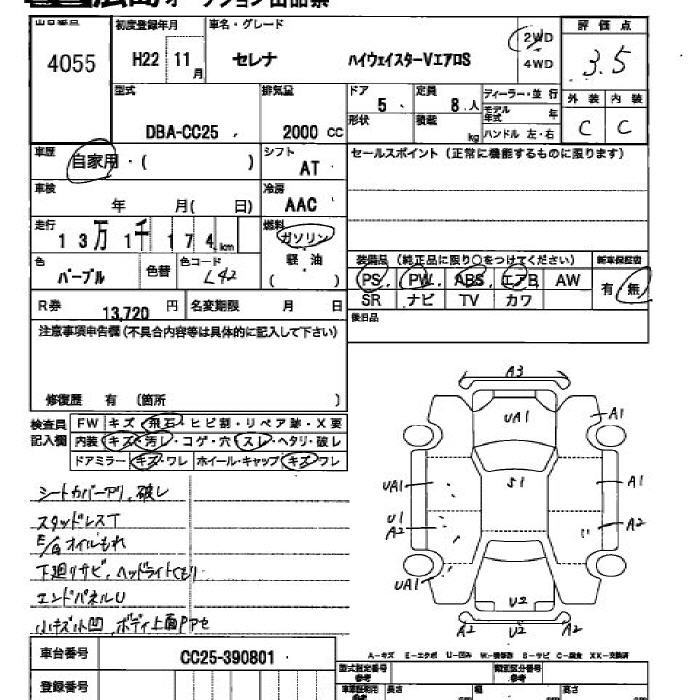 オークション出品票
出品番号 初度登録年月 車名・グレード 評価点
4055 H22 11月 セレナ ハイウェイスターVエアロS 2WD 4WD 3.5
型式 排気量 ドア 定員 ディーラー・並行 外装 内装
DBA-CC25 2000 CC 5 8人 モデル年式 年 C C
形状 積載 kg ハンドル 左・右
車歴 自家用・( ) シフト AT セールスポイント(正常に機能するものに限ります)
車検 年 月( 日) 冷房 AAC
走行 13万1千174km 燃料 ガソリン 軽油 ( )
色 パープル 色替 色コード L42
装備品(純正品に限り○をつけてください) 新車保証書
PS PW ABS エアB AW 有 無
SR ナビ TV カワ
R券 13,720円 名変期限 月 日 後日品
注意事項申告欄(不具合内容等は具体的に記入して下さい)
修復歴 有 (箇所 )
検査員記入欄 FW キズ・飛石・ヒビ割・リペア跡・X要
内装 キズ・汚レ・コゲ・穴・スレ・ヘタリ・破レ
ドアミラー キズ・ワレ ホイール・キャップ キズ・ワレ
シートカバーアリ、破レ
スタッドレスT
E/g オイルもれ
下廻りサビ、ヘッドライトくもり
エンドパネルU
小キズ小凹、ボディ上面
A3
UA1 A1
UA1 S1 A1
U1
A2 A2
UA1
U2
A2 U2 A2
A-キズ E-エクボ U-凹み W-補修跡 S-サビ C-腐食 XX-交換済
車台番号 CC25-390801
型式指定番号 類別区分番号
登録番号 長さ 幅 高さ